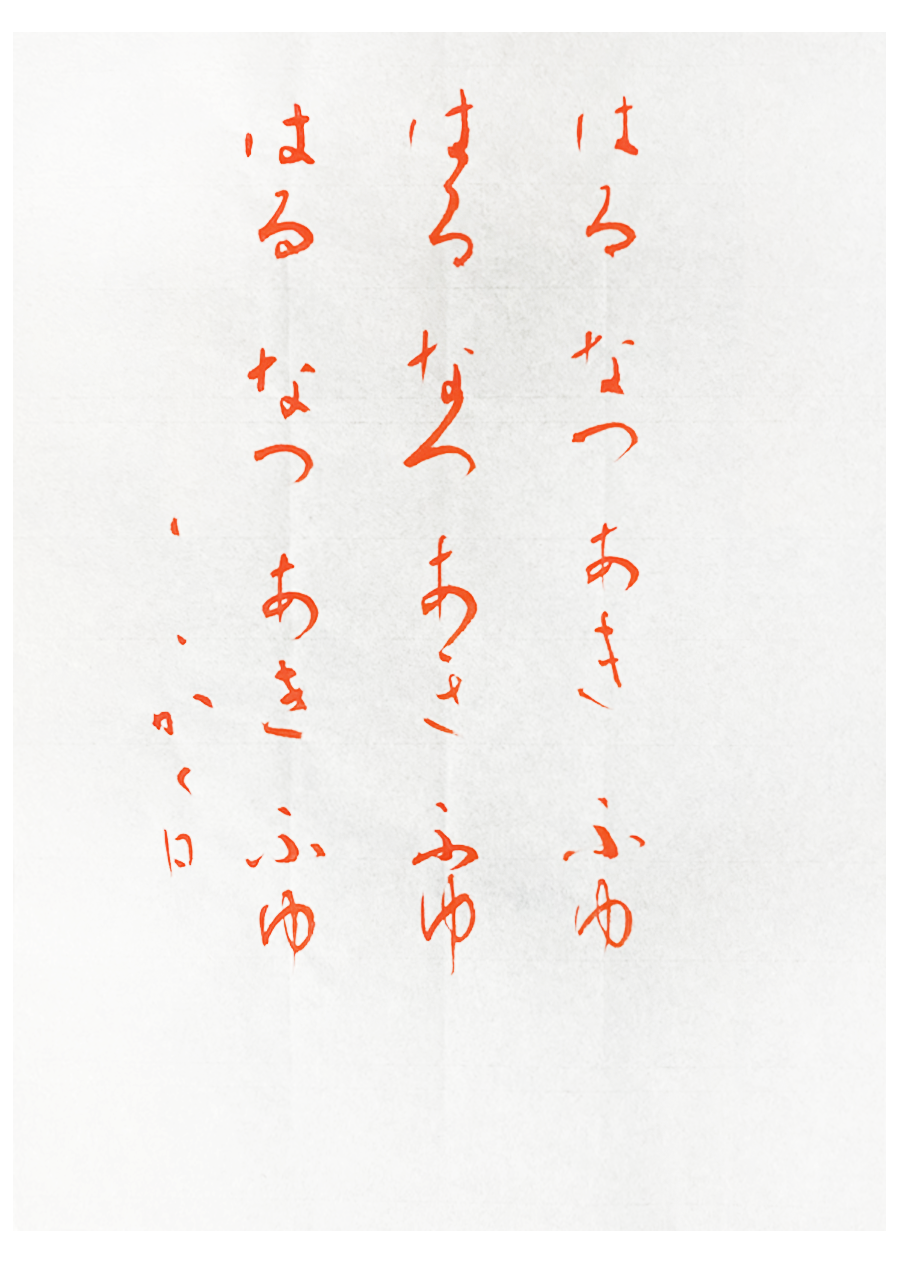 はる なつ あき ふゆ
はる なつ あき ふゆ
はる なつ あき ふゆ